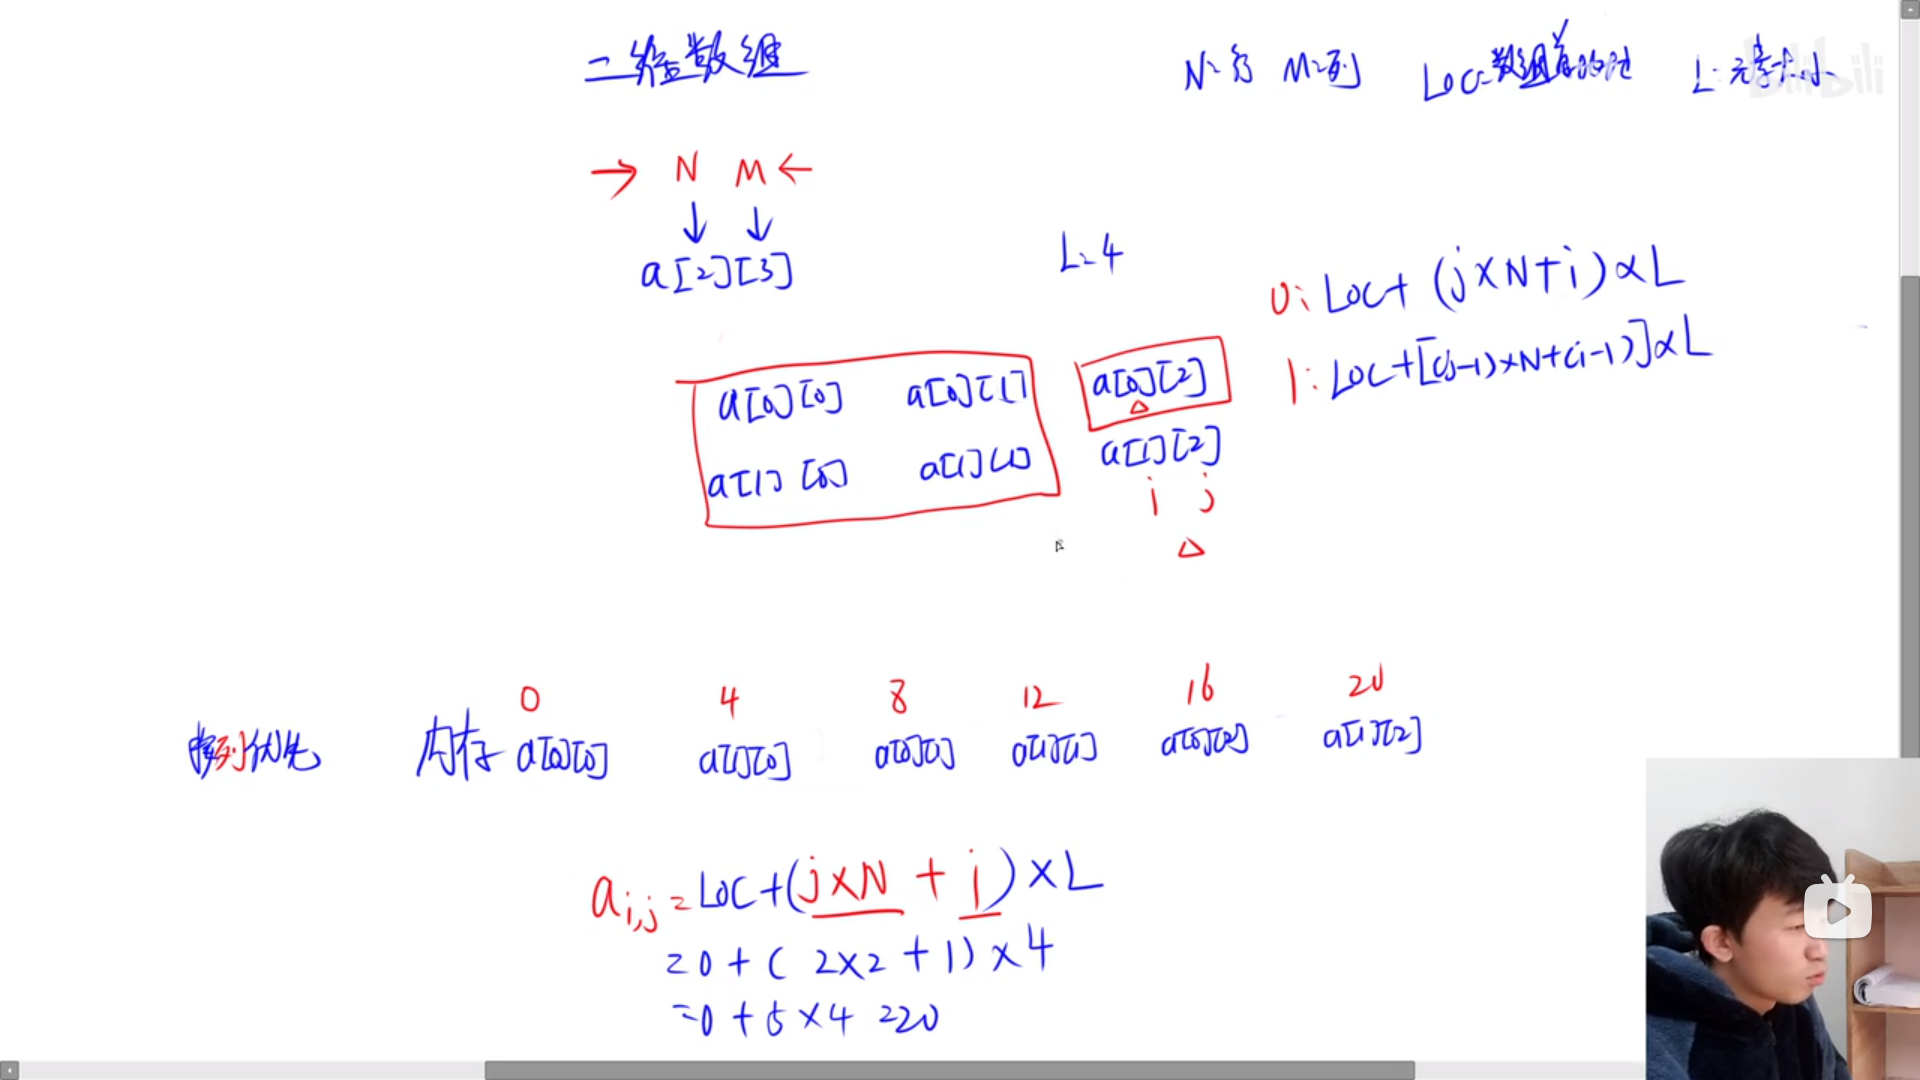 二维数组
N=行 M=列 LOC=数组首的地址 L=元素大小
bilibili
→ N M ←
↓ ↓
a[2][3]
L=4
0: LOC+(j×N+i)×L
1: LOC+[(j-1)×N+(i-1)]×L
a[0][0] a[0][1] a[0][2]
a[1][0] a[1][1] a[1][2]
i j
0 4 8 12 16 20
按列优先 内存 a[0][0] a[1][0] a[0][1] a[1][1] a[0][2] a[1][2]
ai,j=LOC+(j×N+i)×L
=0+(2×2+1)×4
=0+5×4=20